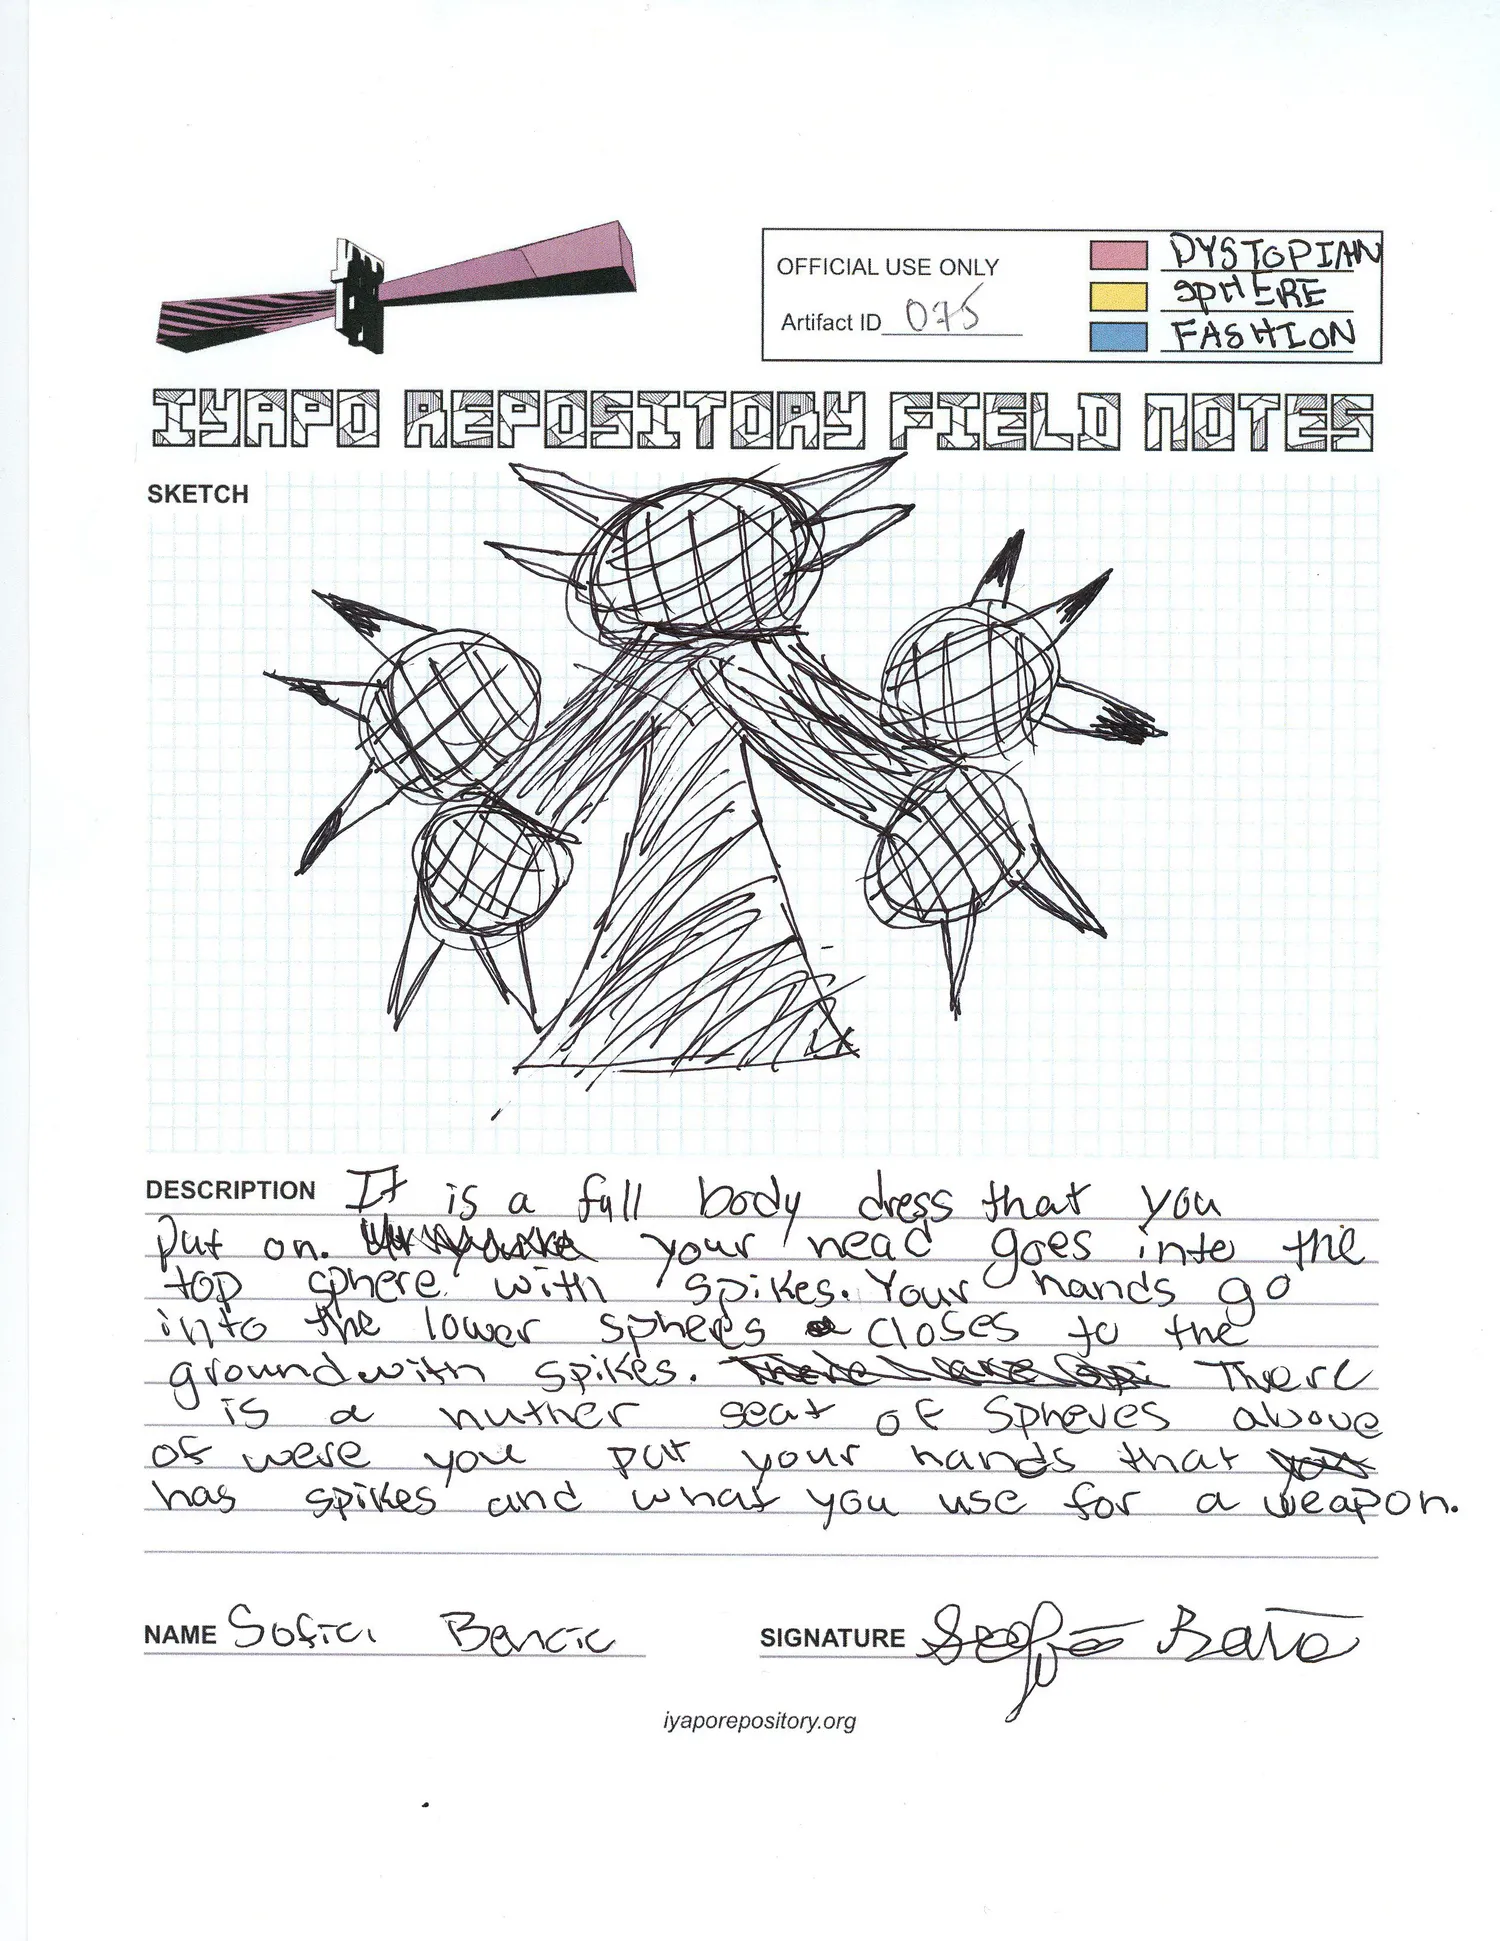 OFFICIAL USE ONLY
Artifact ID 075
DYSTOPIAN
SPHERE
FASHION
IYAPO REPOSITORY FIELD NOTES
SKETCH
DESCRIPTION It is a full body dress that you
put on. your head goes into the
top sphere with spikes. Your hands go
into the lower sphers closes to the
ground with spikes. There
is a nuther seat of spheres above
of were you put your hands that
has spikes and what you use for a weapon.
NAME Sofici
SIGNATURE
iyaporepository.org